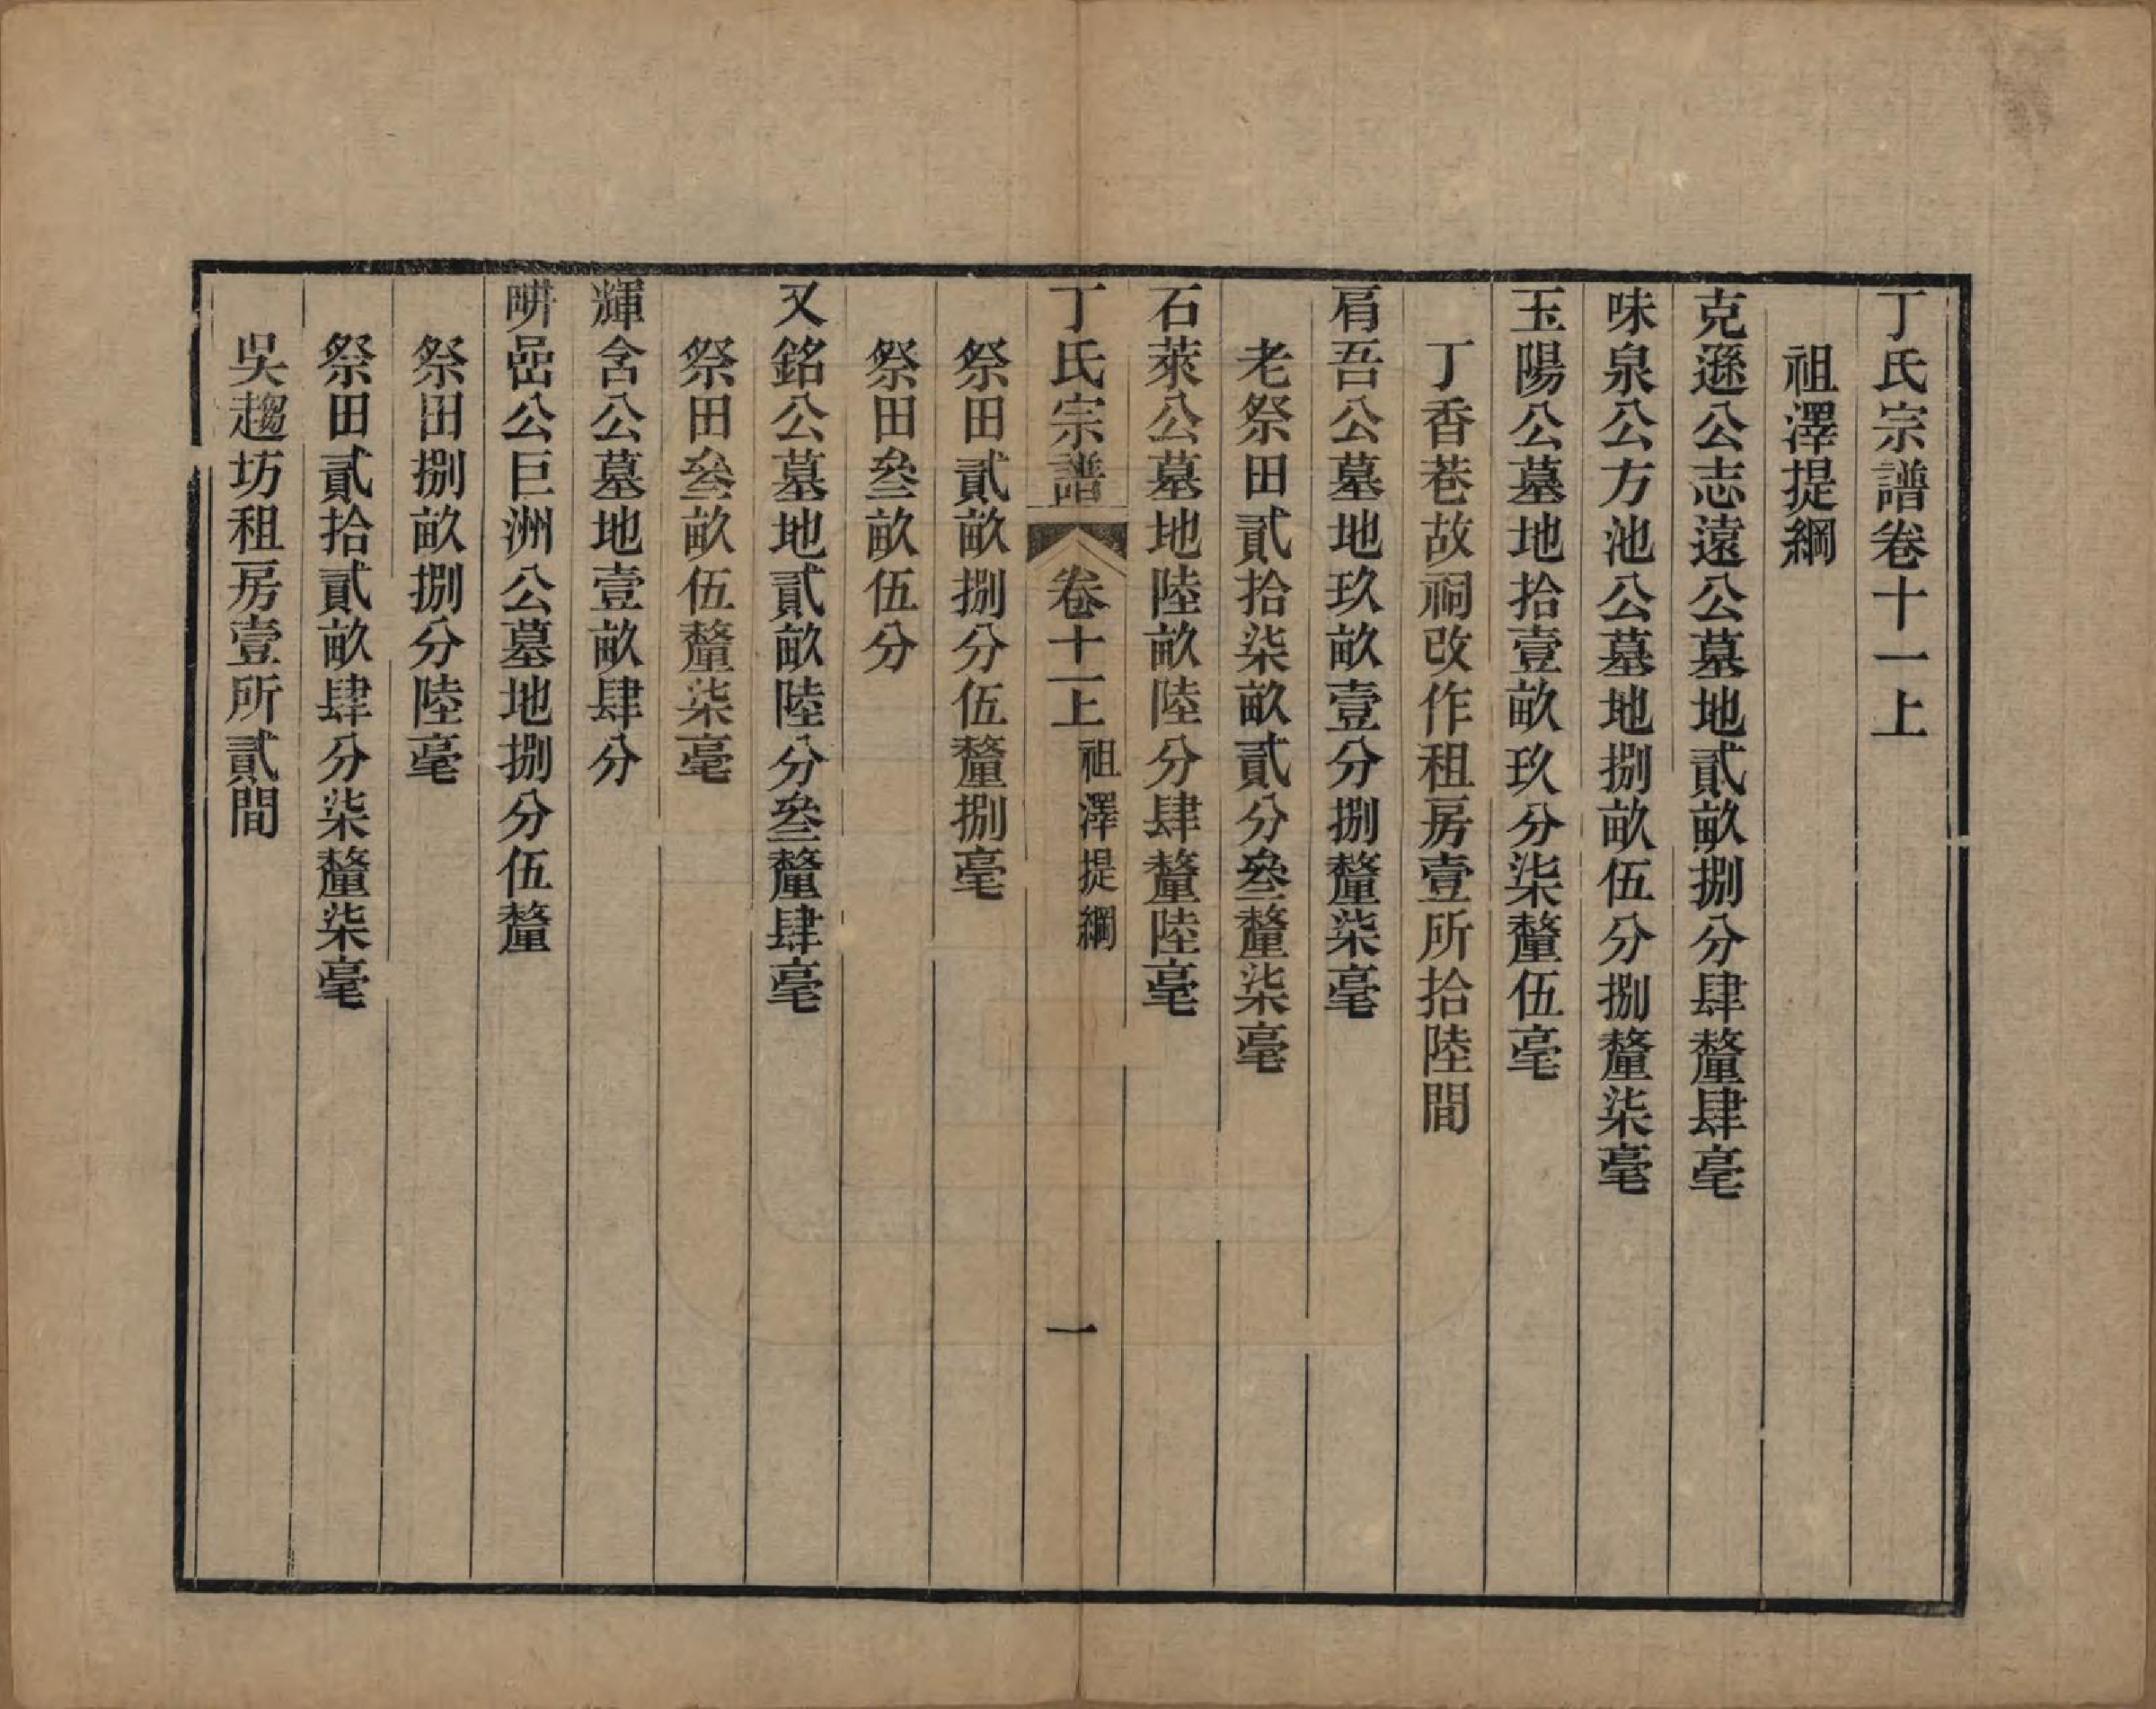 丁氏宗譜卷十一上
祖澤提綱
克遜公志遠公墓地貳畝捌分肆釐肆毫
味泉公方池公墓地捌畝伍分捌釐柒毫
玉陽公墓地拾壹畝玖分柒釐伍毫
丁香巷故祠改作租房壹所拾陸間
肩吾公墓地玖畝壹分捌釐柒毫
老祭田貳拾柒畝貳分叁釐柒毫
石萊公墓地陸畝陸分肆釐陸毫
丁氏宗譜 卷十一上 祖澤提綱 一
祭田貳畝捌分伍釐捌毫
祭田叁畝伍分
又銘公墓地貳畝陸分叁釐肆毫
祭田叁畝伍釐柒毫
輝含公墓地壹畝肆分
畊嵒公巨洲公墓地捌分伍釐
祭田捌畝捌分陸毫
祭田貳拾貳畝肆分柒釐柒毫
吳趨坊租房壹所貳間